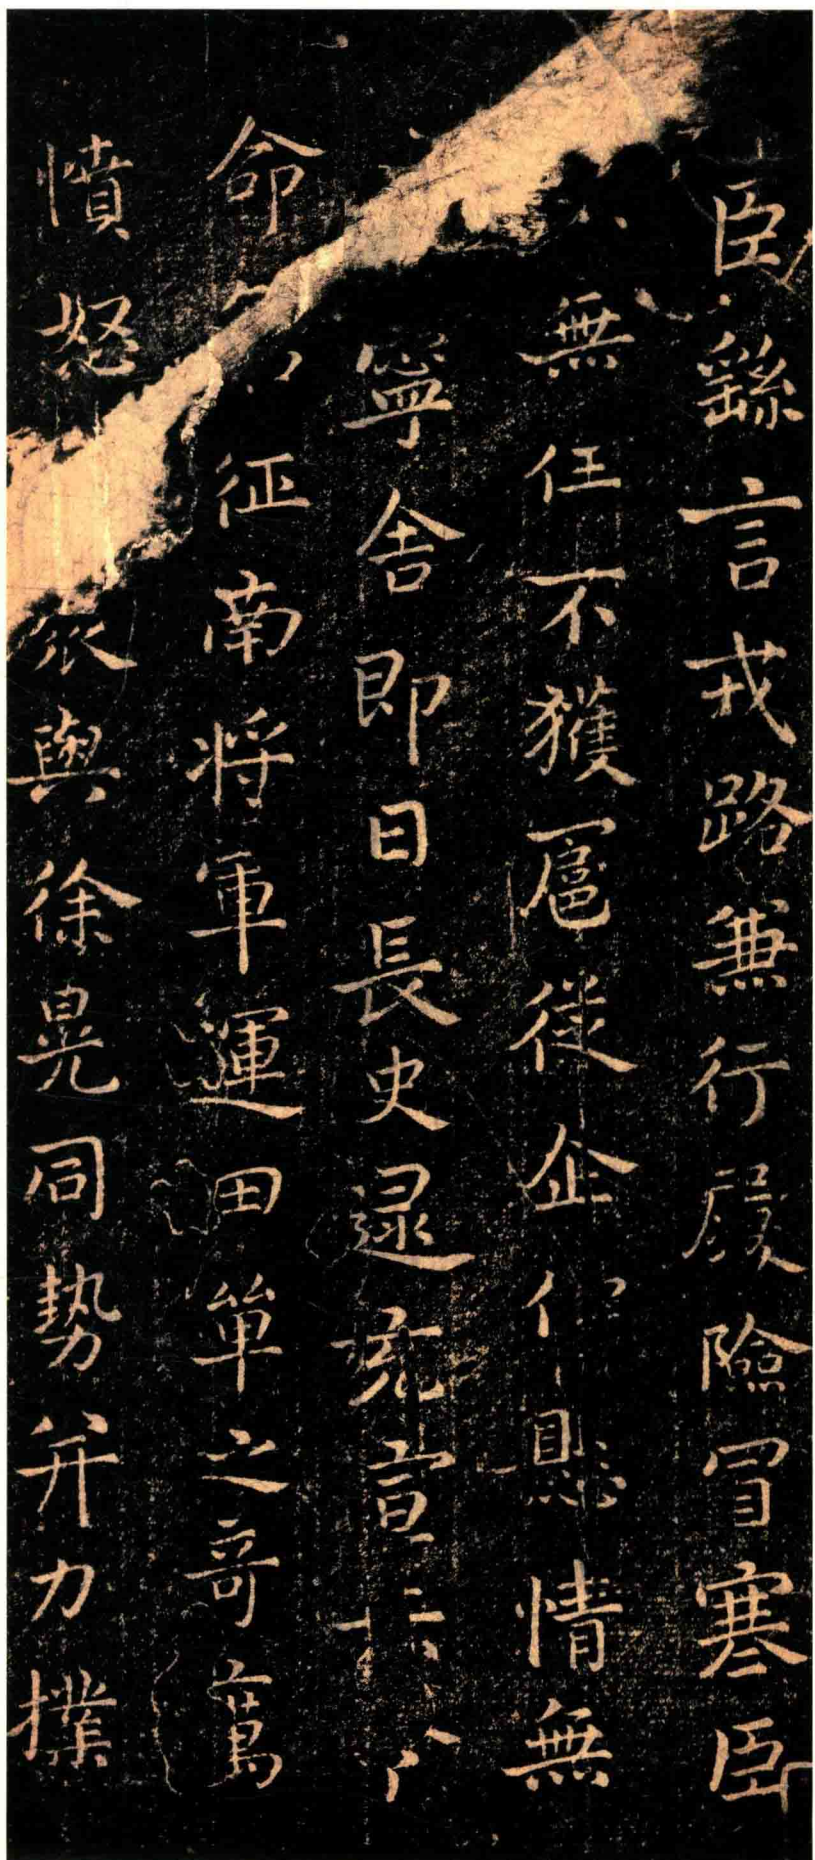 臣繇言戎路兼行履險冒寒臣
無任不獲扈從企仰懸情無
寧舍即日長史逯充宣
命 征南將軍運田單之奇
憤怒 衆與徐晃同勢并力撲